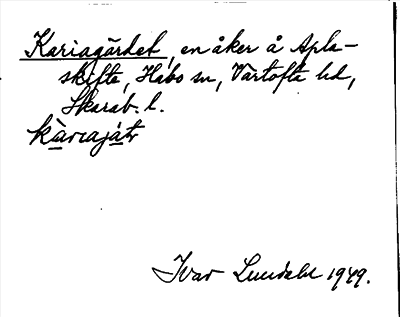 Kariagärdet, en åker å Apla-
skifte, Habo sn, Vartofta hd,
Skarab. l.
Ivar Lundahl 1949.